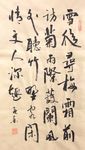 雪後尋梅霜前
訪菊雨際護蘭風
外聽竹野客閒
情文人深趣